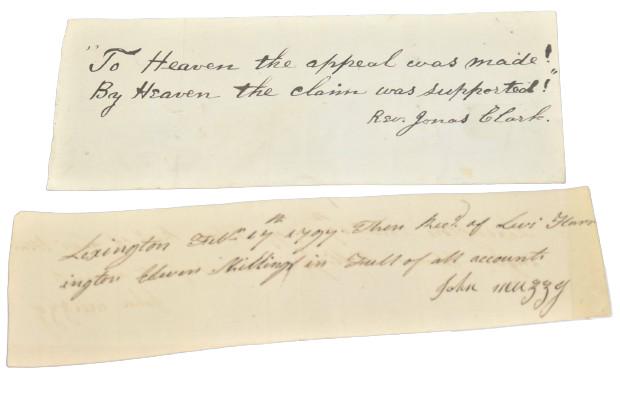 "To Heaven the appeal was made!
By Heaven the claim was supported!"
Rev. Jonas Clark.
Lexington Feb. 17th 1797 Then Recd. of Levi Harr
ington Eleven Shillings in Full of all accounts
John Muzzy